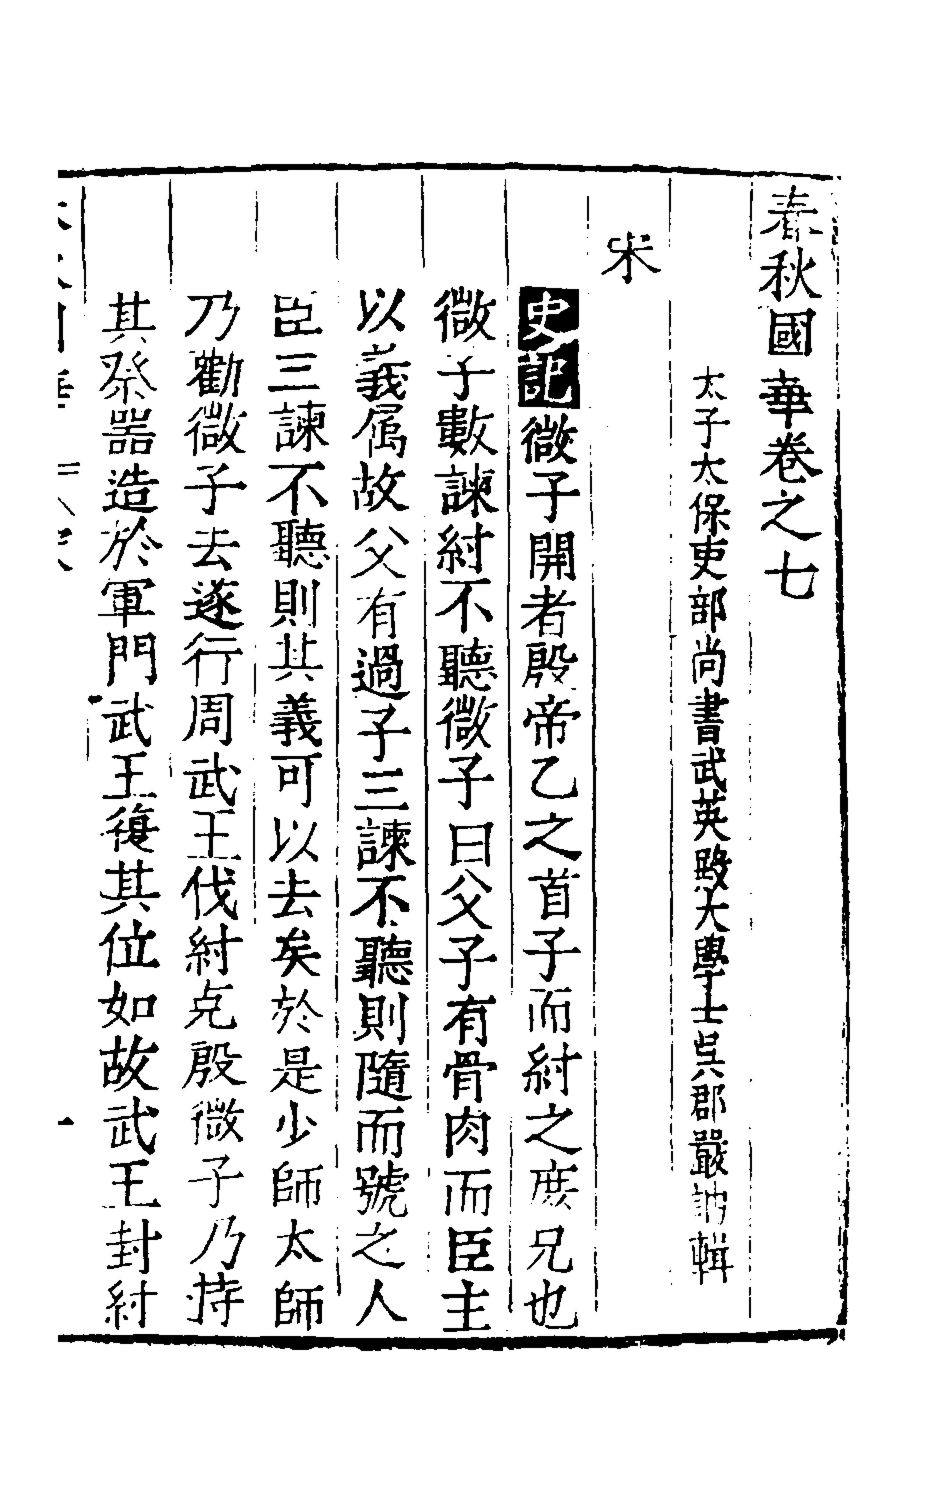 春秋國華卷之七
太子太保吏部尚書武英殿大學士吳郡嚴訥輯
宋
史記微子開者殷帝乙之首子而紂之庶兄也
微子數諫紂不聽微子曰父子有骨肉而臣主
以義属故父有過子三諫不聽則隨而號之人
臣三諫不聽則其義可以去矣於是少師太師
乃勸微子去遂行周武王伐紂克殷微子乃持
其祭器造於軍門武王復其位如故武王封紂